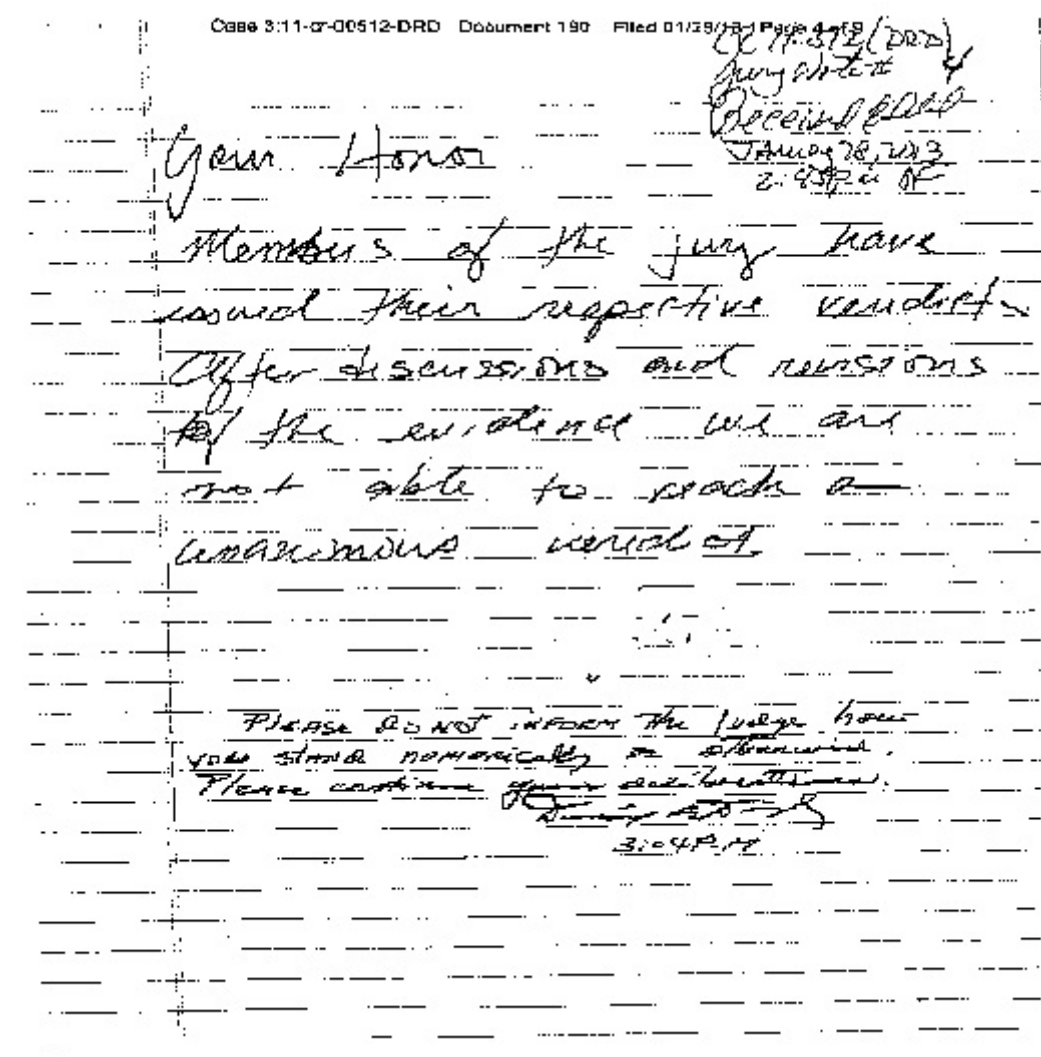 Case 3:11-cr-00512-DRD Document 190 Filed 01/29/13 Page 4 of 9
(DRD)
Jury Note # 4
Received
January 28, 2013
2:45 P.M.
Your Honor
Members of the jury have
issued their respective verdicts
After discussions and revisions
of the evidence we are
not able to reach a
unanimous verdict
Please do not inform the Judge how
you stand numerically or otherwise.
Please continue your deliberations.
3:04 P.M.